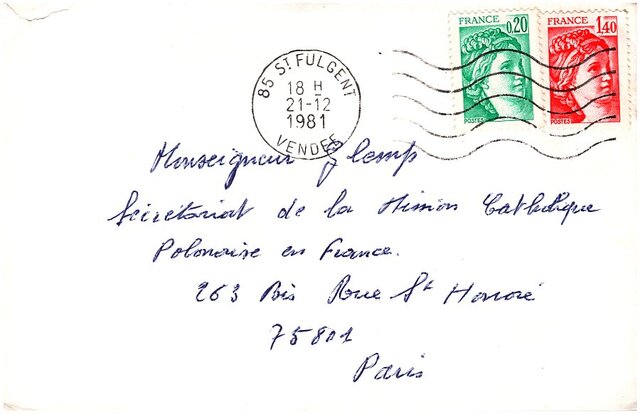 FRANCE
0,20
POSTES
FRANCE
1,40
POSTES
85 ST FULGENT
18 H
21-12
1981
VENDEE
Monseigneur
Secrétariat de la Mission Catholique
Polonaise en France.
263 Bis Rue St Honoré
75801
Paris